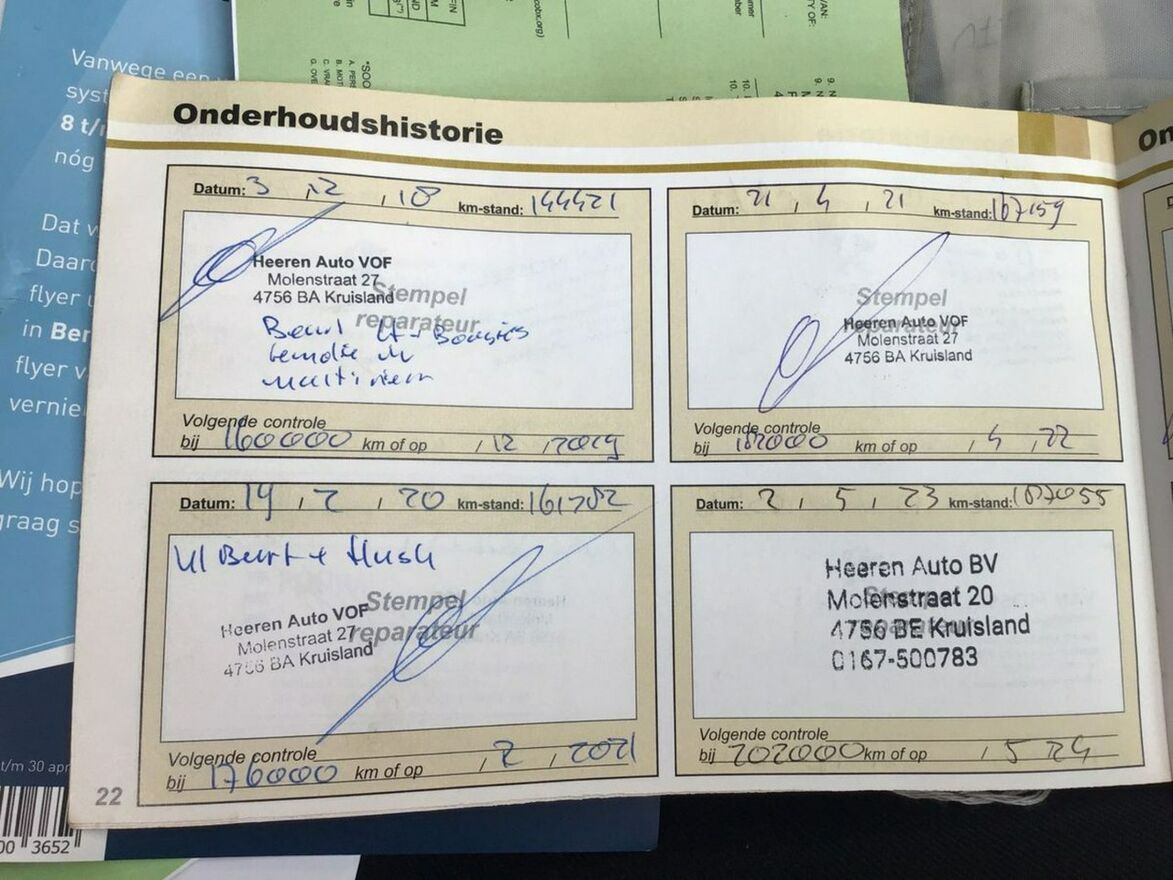 Vanwege een
syst
8 t/
nóg
Dat w
Daar
flyer
in Ber
flyer v
vernie
Wij hop
graag s
t/m 30 apr
00 3652
Onderhoudshistorie
On
Datum: 3 , 12 , 18 km-stand: 144421
Stempel
reparateur
Heeren Auto VOF
Molenstraat 27
4756 BA Kruisland
Beurt Bougies
Volgende controle
bij 160000 km of op , 12 , 2019
Datum: 21 , 4 , 21 km-stand: 167159
Stempel
reparateur
Heeren Auto VOF
Molenstraat 27
4756 BA Kruisland
Volgende controle
bij 182000 km of op , 4 , 22
Datum: 19 , 2 , 20 km-stand: 161782
Beurt +
Stempel
reparateur
Heeren Auto VOF
Molenstraat 27
4756 BA Kruisland
Volgende controle
bij 176000 km of op , 2 , 2021
Datum: 2 , 5 , 23 km-stand: 187055
Heeren Auto BV
Molenstraat 20
4756 BE Kruisland
0167-500783
Volgende controle
bij 202000 km of op , 5 24
22